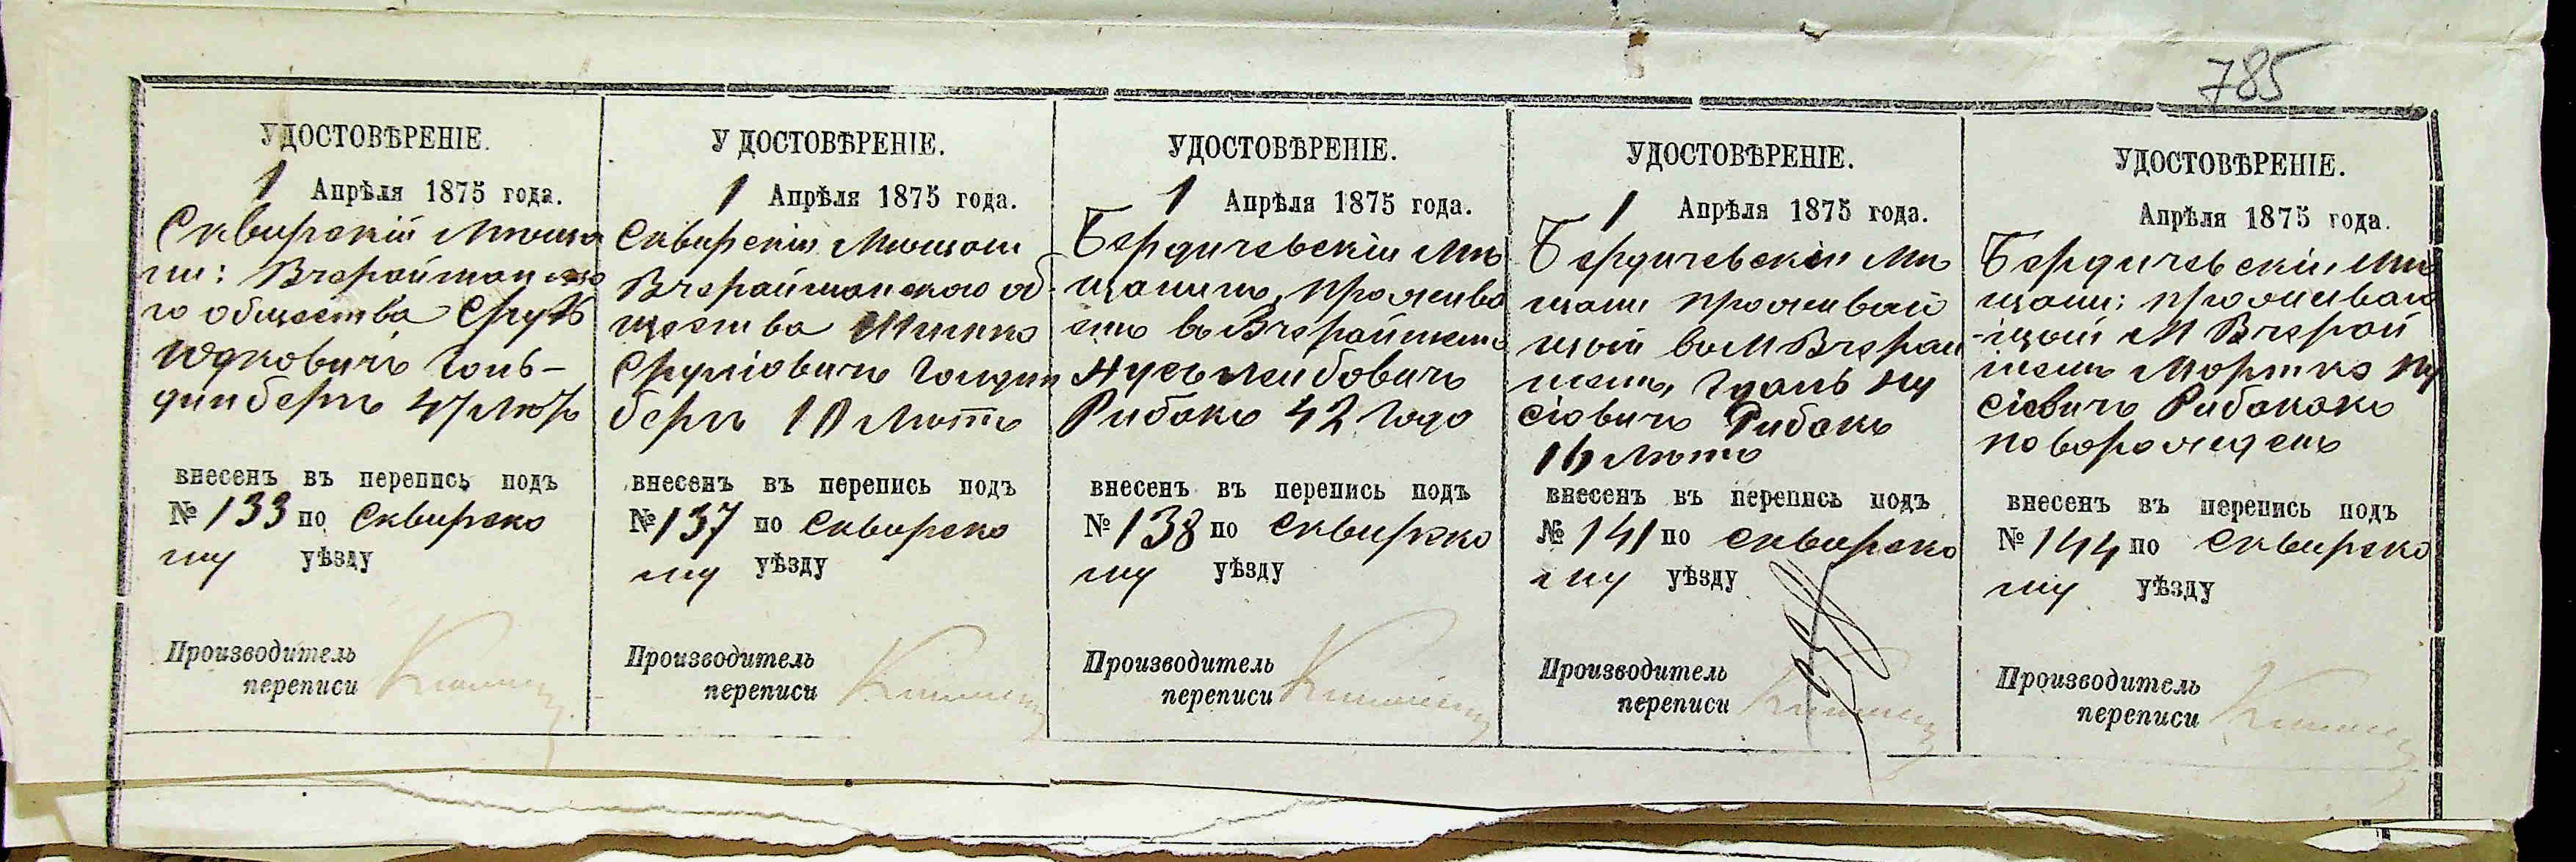 785
УДОСТОВѢРЕНІЕ.
1 Апрѣля 1875 года.
Сквирскій Мѣща
ни: Вчерайшанско
го общества Сруль
Юдковичъ Голь-
динберъ 47 лѣтъ
внесенъ въ перепись подъ
№ 133 по Сквирско
му уѣзду
Производитель
переписи
УДОСТОВѢРЕНІЕ.
1 Апрѣля 1875 года.
Сквирскій Мѣщани
Вчерайшанскаго об-
щества Шинко
Сруліовичъ Голдин
беръ 18 лѣтъ
внесенъ въ перепись подъ
№ 137 по Сквирско
му уѣзду
Производитель
переписи
УДОСТОВѢРЕНІЕ.
1 Апрѣля 1875 года.
Бердичевскій Мѣ
щанинъ, прожива
етъ въ Вчерайшенъ
Нусь Лейбовичъ
Рибакъ 42 года
внесенъ въ перепись подъ
№ 138 по Сквирско
му уѣзду
Производитель
переписи
УДОСТОВѢРЕНІЕ.
1 Апрѣля 1875 года.
Бердичевскій Мѣ
щани проживаю
щій въ М Вчерай
шенъ, Ну
сіовичъ Рибакъ
16 лѣтъ
внесенъ въ перепись подъ
№ 141 по Сквирско
му уѣзду
Производитель
переписи
УДОСТОВѢРЕНІЕ.
Апрѣля 1875 года.
Бердичевскій Мѣ
щани: проживаю
-щій М Вчерай
шенъ Мортко Ну
сіовичъ Рибакокъ
новорожденъ
внесенъ въ перепись подъ
№ 144 по Сквирско
му уѣзду
Производитель
переписи